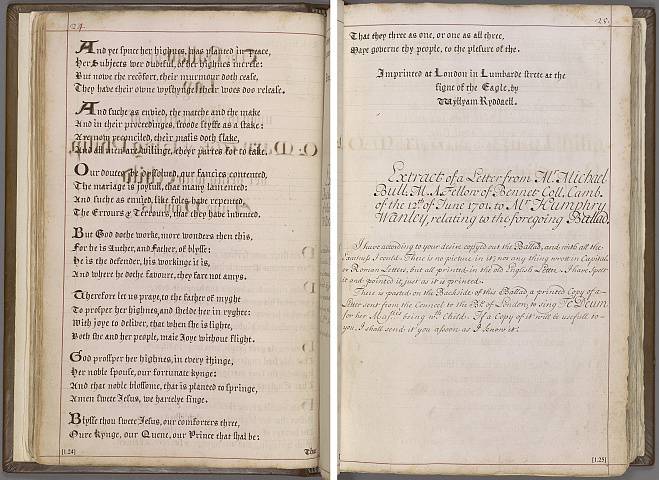 24.
And yet synce her highnes, was planted in peace,
Her Subjects wer dubtful, of her highnes increse:
But nowe the recōfort, their murmour doth cease,
They have their owne wyshynge their woes doo release.
And suche as envied, the matche and the make
And in their proceedinges, stoode styffe as a stake:
Are now reconciled, their malis doth slake,
And all men are willinge, theyr partes for to take.
Our doutes be dyssolued, our fancies contented,
The mariage is joyfull, that many lamented:
And suche as envied, like foles have repented,
The Errours & Terrours, that they have invented.
But God dothe worke, more wonders then this,
For he is Aucher, and Father, of blysse:
He is the defender, his workinge it is,
And where he dothe favoure, they fare not amys.
Therefore let us praye, to the father of myght
To prosper her highnes, and shelde her in ryghte:
With joye to deliver, that when she is lighte,
Both she and her people, maie Joye without flight.
God prosper her highnes, in every thinge,
Her noble spouse, our fortunate kynge:
And that noble blossome, that is planted to springe,
Amen swete Jesus, we hartelye singe.
Blysse thou swete Jesus, our comforters three,
Oure Kynge, our Quene, our Prince that shal be:
[1.24]
That
25.
That they three as one, or one as all three,
Maye governe thy people, to the plesure of the.
Imprinted at London in Lumbarde strete at the
signe of the Eagle, by
Wyllyam Ryddaell.
Extract of a Letter from Mr. Michael
Bull M.A. Fellow of Bennet-Coll. Camb.
of the 12th of June 1701. to Mr. Humphrey
Wanley, relating to the foregoing Ballad.
I have according to your desire copyed out the Ballad, and with all the
Exactness I could. There is no picture in it; nor any thing wrote in Capital
or Roman Letters, but all printed in the old English Letter. I have Spelt
it and pointed it, just as it is printed.
There is pasted on the Backside of this Ballad a printed Copy of a
Letter sent from the Councel to the Bp. of London, to sing Te Deum
for her Majties being wth Child. If a Copy of it will be usefull to
you, I shall send it you assoon as I know it.
[1.25]